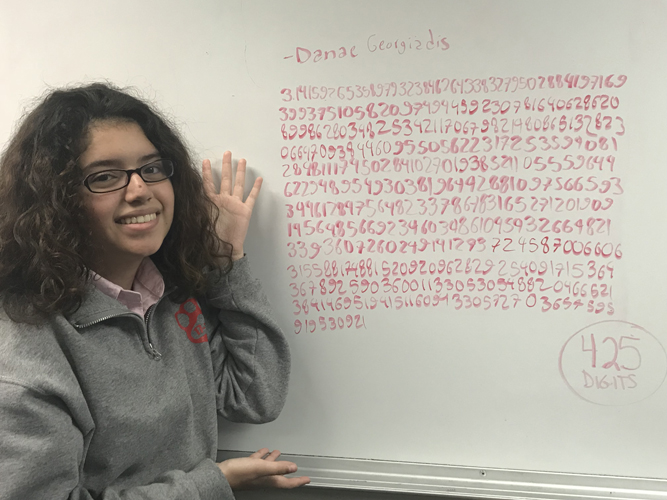 -Danae Georgiadis
3.141592653589793238462643383279502884197169
39937510582097494459230781640628620
8998628034825342117067982148086513282 3
066470938446095505822317253594081
2848111745028410270193852110555964 4
62294895493038196442881097566593
3446128475648233786783165271201909
14564856692346034861045432664821
3393607260249141273724587006606
315588174881520920962829254091715364
367892590360011330530548820466521
3841469519415116094330572703657595
919530921
425
DIGITS